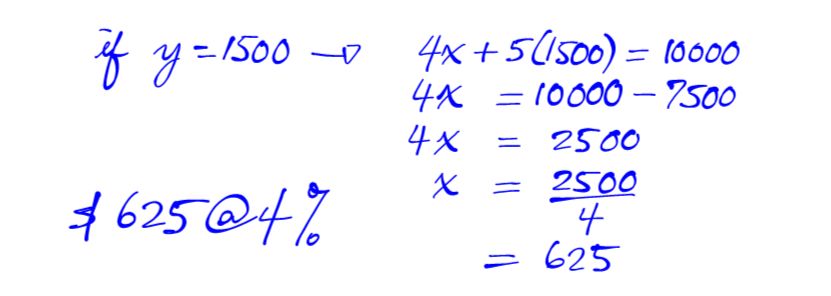 if y = 1500 → 4x + 5(1500) = 10000
4x = 10000 - 7500
4x = 2500
x = 2500/4
$ 625 @ 4%
= 625